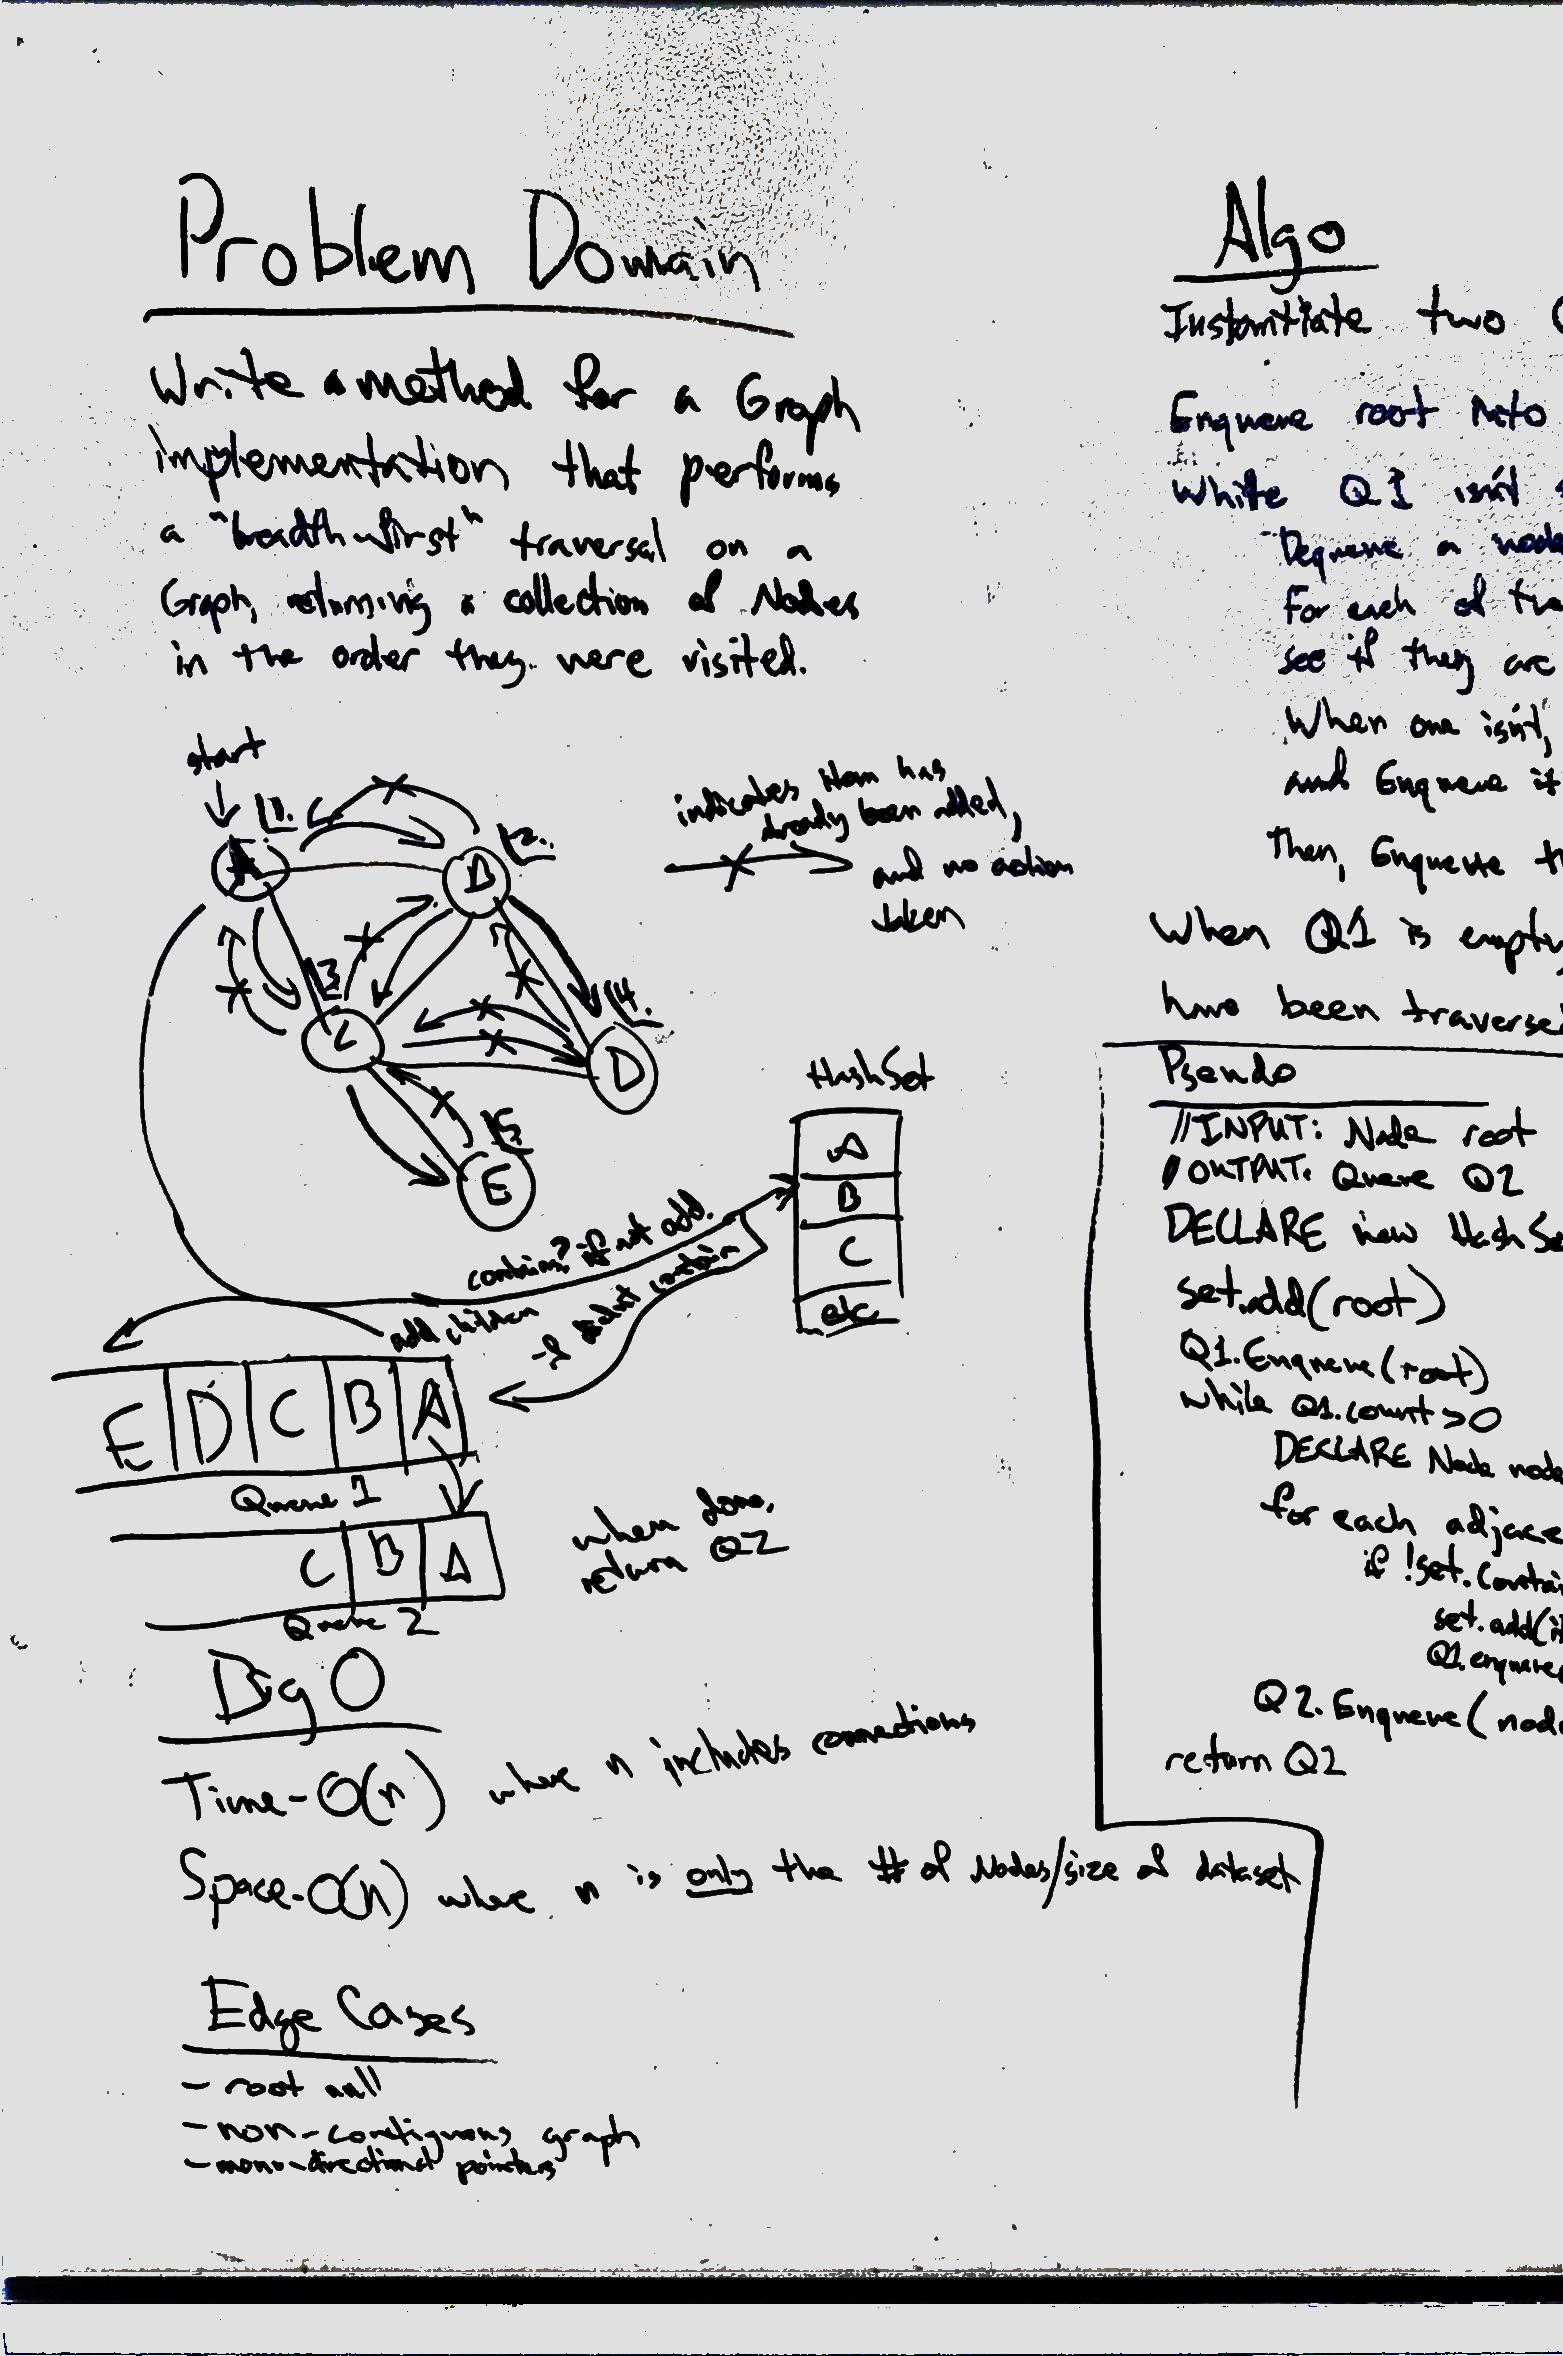 Problem Domain
Write a method for a Graph
implementation that performs
a "breadth-first" traversal on a
Graph, returning a collection of Nodes
in the order they were visited.
start
1.
2.
3
4.
5.
A
B
C
D
E
indicates item has
already been added,
and no action
taken
HashSet
A
B
C
etc
contains? if not add.
add children
if doesn't contain
E D C B A
Queue 1
C B A
Queue 2
when done,
return Q2
Big O
Time - O(n) where n includes connections
Space - O(n) where n is only the # of Nodes/size of dataset
Edge Cases
- root null
- non-contiguous graph
- mono-directional pointers
Algo
Instantiate two
Enqueue root into
While Q1 isn't
Dequeue a node
For each of
see if they are
When one isn't,
and Enqueue it
Then, Enqueue
When Q1 is empty
have been traversed
Pseudo
//INPUT: Node root
//OUTPUT: Queue Q2
DECLARE new HashSe
set.add(root)
Q1.Enqueue(root)
while Q1.count > 0
DECLARE Node node
for each adjace
if !set.Contai
set.add(i
Q1.enqueue
Q2.Enqueue(nod
return Q2